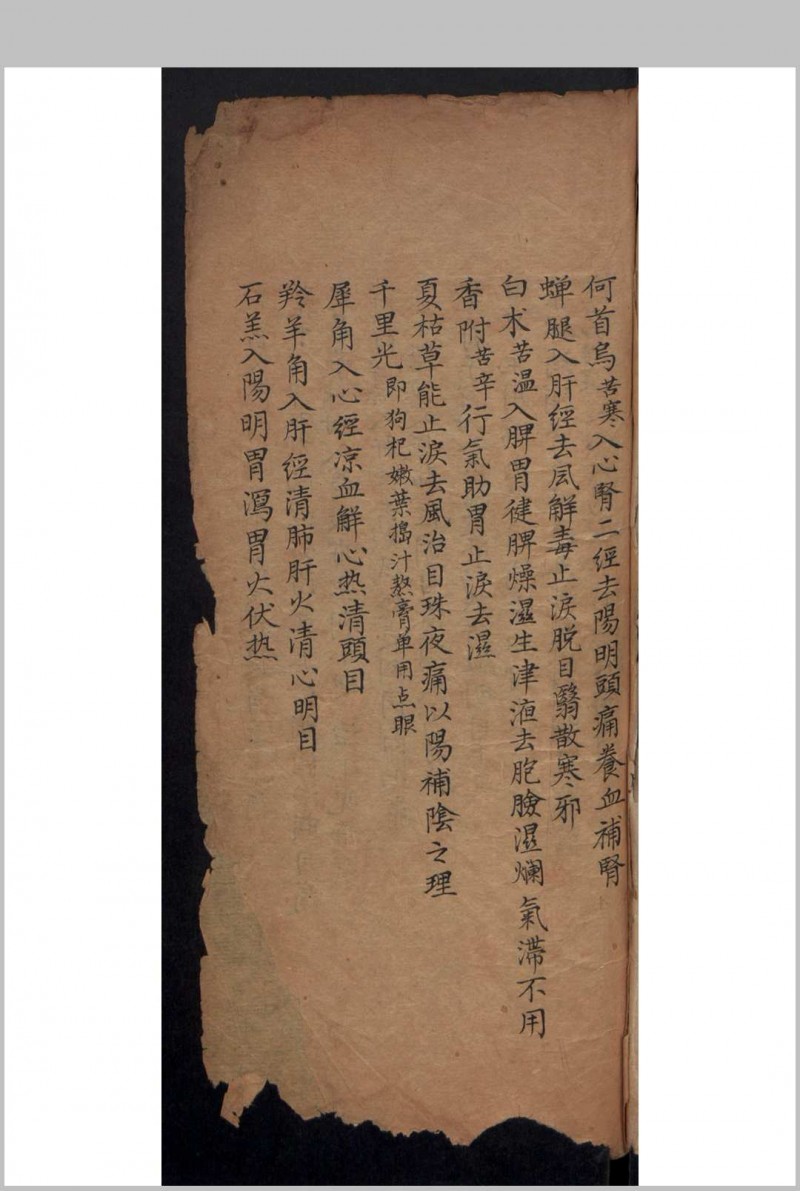 何首烏苦寒入心腎二經去陽明頭痛養血補腎
蟬腿入肝經去凮解毒止淚脱目翳散寒邪
白术苦温入脾胃健脾燥濕生津液去胞臉濕爛氣滯不用
香附苦辛行氣助胃止淚去濕
夏枯草能止淚去風治目珠夜痛以陽補陰之理
千里光即狗杞嫩葉搗汁熬膏单用点眼
犀角入心經凉血解心热清頭目
羚羊角入肝經清肺肝火清心明目
石羔入陽明胃瀉胃火伏热